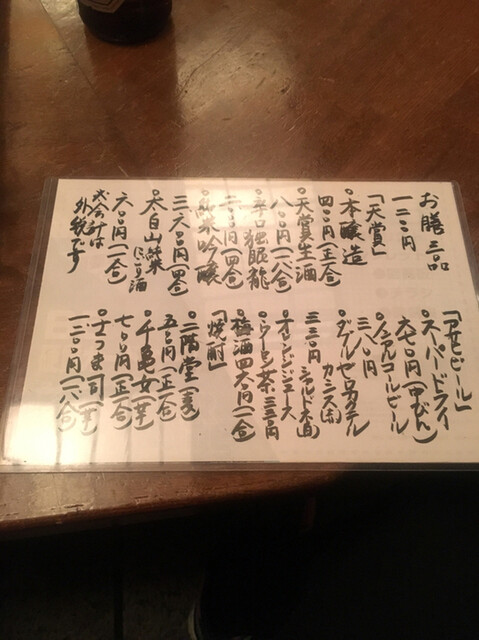 お膳三品
一二〇〇円
「天賞」
○本醸造
四〇〇円(正一合)
○天賞生酒
八〇〇円(一、八合)
○辛口独眼龍
○純米吟醸
三、六〇〇円(四合)
○太白山純米
にごり酒
六〇〇円(一合)
お会計は
外税です
「アサヒビール」
○スーパードライ
六七〇円(中びん)
○ノンアルコールビール
三八〇円
○ダブルゼロカクテル
カシス(赤)
シャルドネ(白)
三三〇円
○オレンジジュース
○ウーロン茶三三〇円
○梅酒四六〇円(一合)
「焼酎」
○二階堂(麦)
五〇〇円(正一合)
○千亀女(芋)
七〇〇円(正一合)
○さつま司(芋)
一二〇〇円(一、八合)